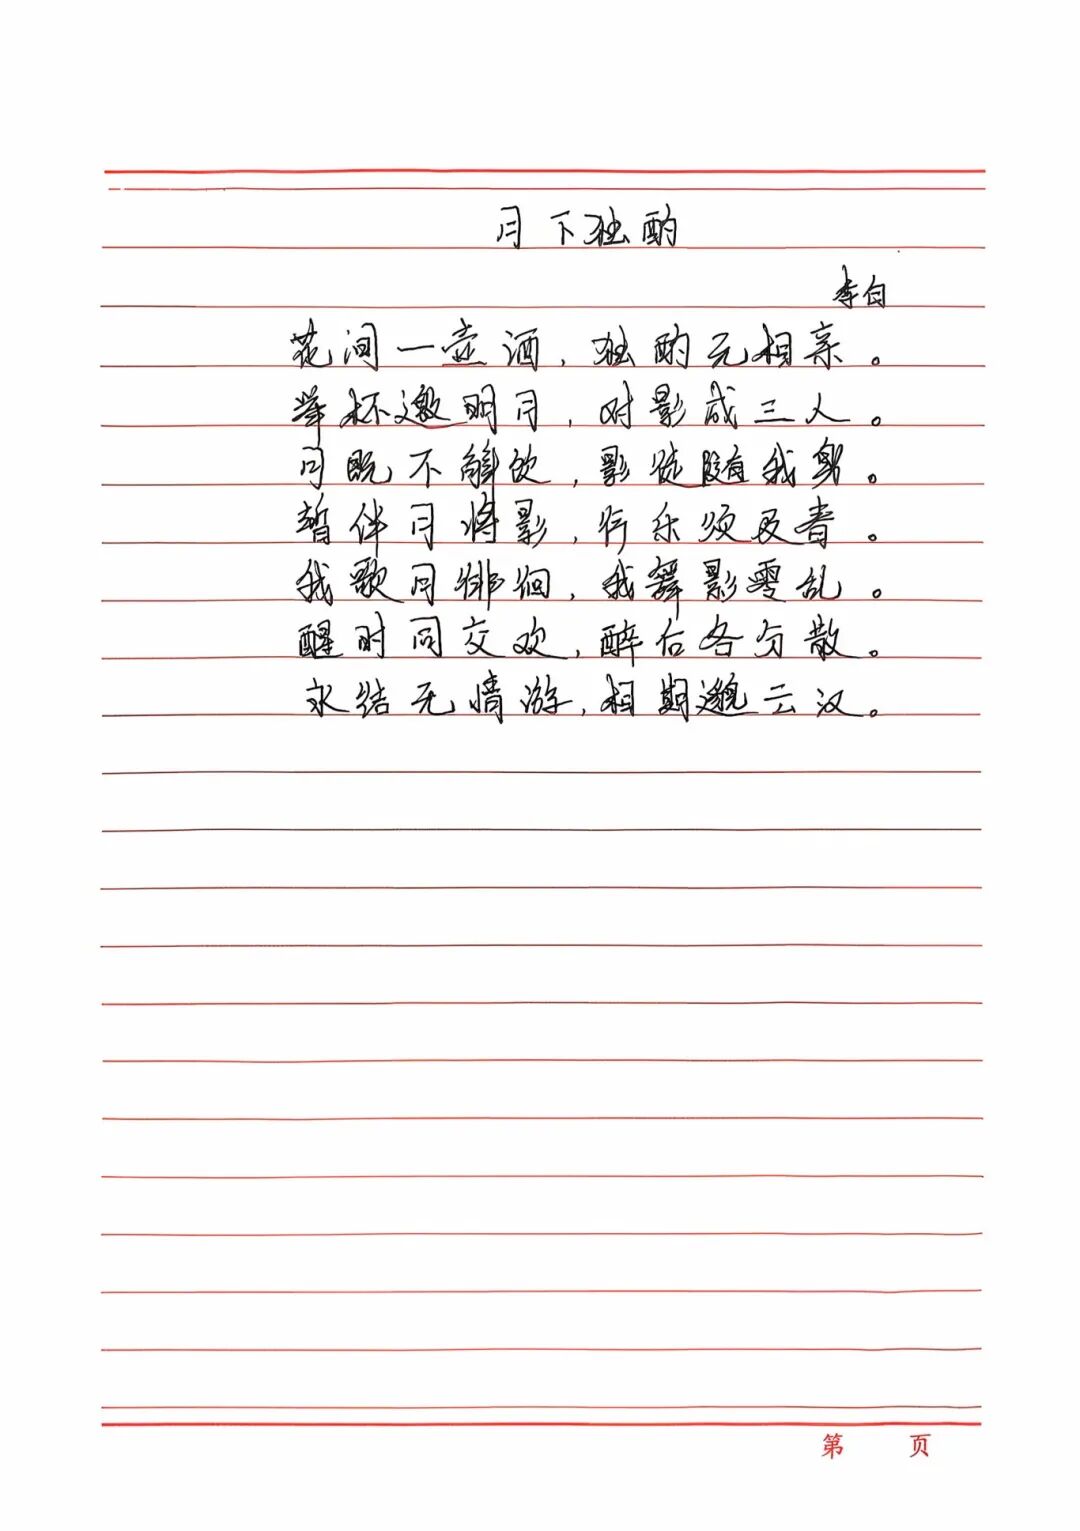 月下独酌
李白
花间一壶酒，独酌无相亲。
举杯邀明月，对影成三人。
月既不解饮，影徒随我身。
暂伴月将影，行乐须及春。
我歌月徘徊，我舞影零乱。
醒时同交欢，醉后各分散。
永结无情游，相期邈云汉。
第 页